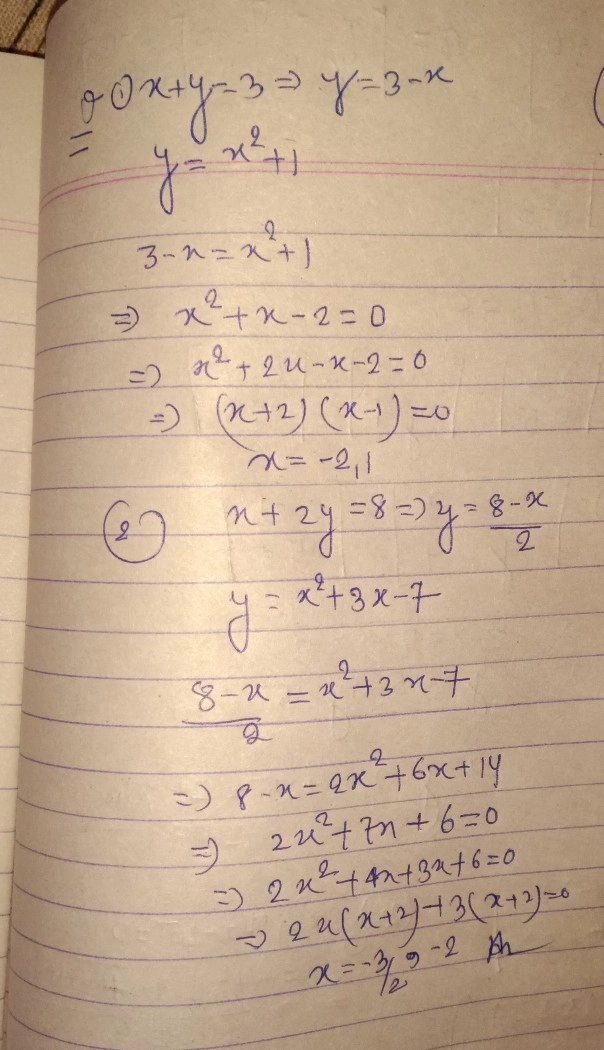 ① x+y=3 ⇒ y=3-x
y = x²+1
3-x = x²+1
⇒ x²+x-2=0
⇒ x²+2x-x-2=0
⇒ (x+2)(x-1)=0
x = -2,1
② x+2y=8 ⇒ y = (8-x)/2
y = x²+3x-7
(8-x)/2 = x²+3x-7
⇒ 8-x=2x²+6x+14
⇒ 2x²+7x+6=0
⇒ 2x²+4x+3x+6=0
⇒ 2x(x+2)+3(x+2)=0
x = -3/2, -2